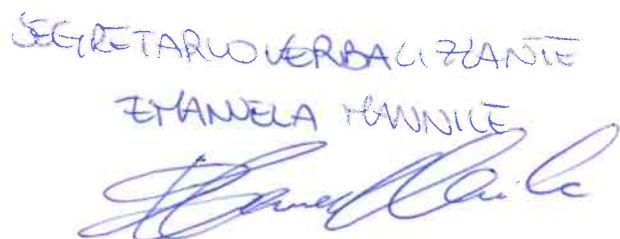 SEGRETARIO VERBALIZZANTE
EMANUELA MANNILE